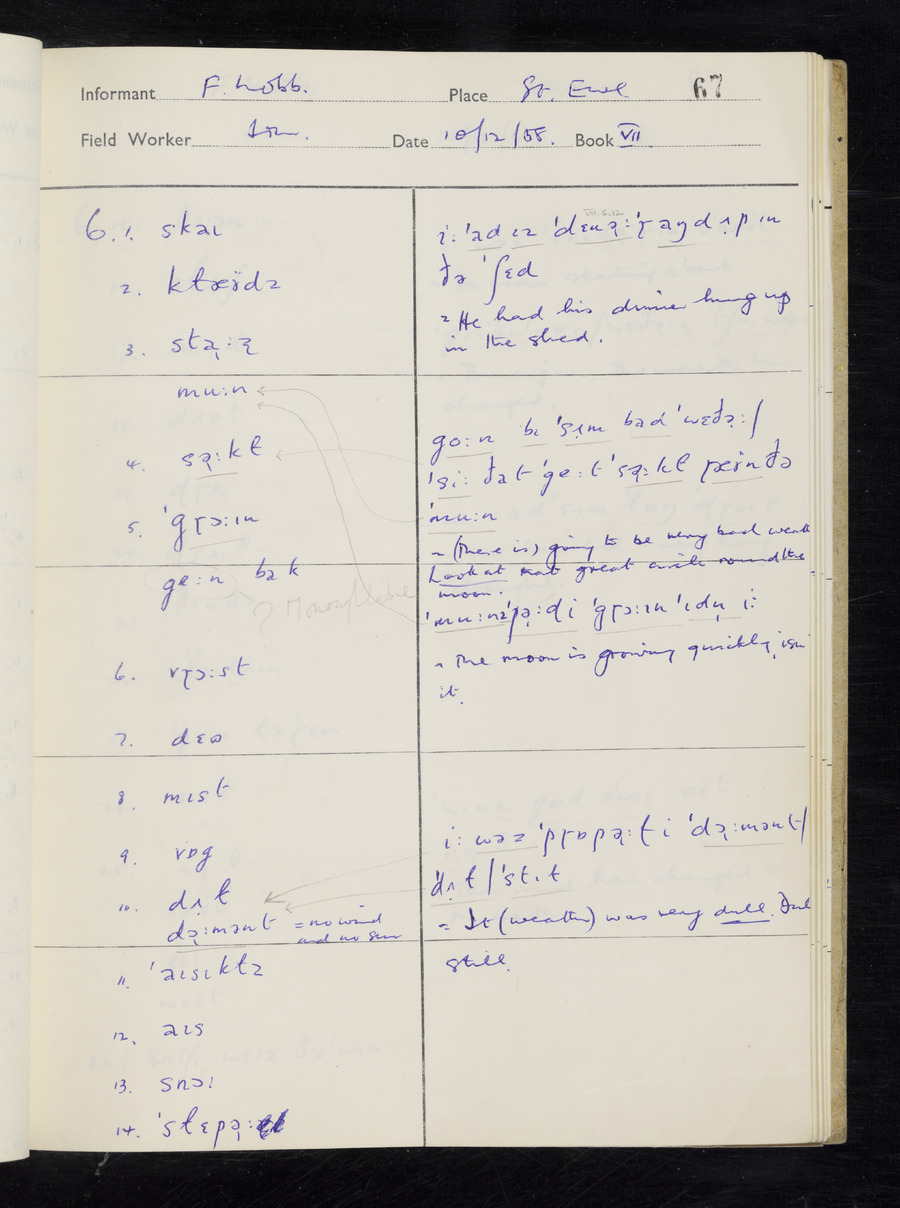 Informant F. Lobb. Place St. Ewe 67
Field Worker Date 10/12/58. Book VII
6. 1. skaɪ
2. klæïdz
3. stə̨:z̨
mu:n
4. sə̨:kɫ
5. 'gɽɔ:ɪn
ge:n bæk
? Monosyllable
6. vɽɔ:st
7.
8. mɪst
9. vɒg
10. dʌɫ
də̨:mənt = no wind
and no sun
11. 'aɪsɪkɫz
12. aɪs
13. snɔ:
14. 'slɛpə̨:
VII.5.12
i: 'ad ɪz 'dɛnə̨:'ɽ aŋd ʌp ɪn
ðə 'ʃɛd
= He had his dinner hung up
in the shed.
go:n bɪ 'sʌm bad 'wɛðə̨:/
'si: ðat 'ge:t 'sə̨:kɫ ɽæïn ðə
'mu:n
= (There is) going to be very bad weath
Look at that great circle round the
moon.
'mu:nz 'pə̨:di 'gɽɔ:ɪn 'ɪdn̩ i:
= The moon is growing quickly, isn
it.
i: wəz 'pɽɒpə̨:ɫi 'də̨:mənt/
'dʌɫ / 'stɪɫ
= It (weather) was very dull. Dul
still.